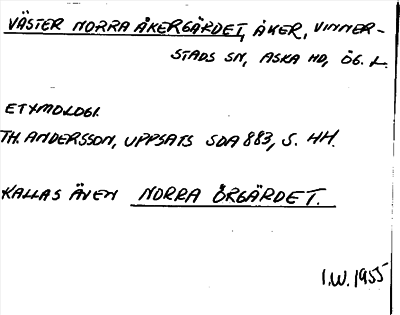 VÄSTER NORRA ÅKERGÄRDET, ÅKER, VINNER-
STADS SN, ASKA HD, ÖG. L.
ETYMOLOGI.
TH. ANDERSSON, UPPSATS SDA 883, S. 44.
KALLAS ÄVEN NORRA ÖRGÄRDET.
I.W. 1955